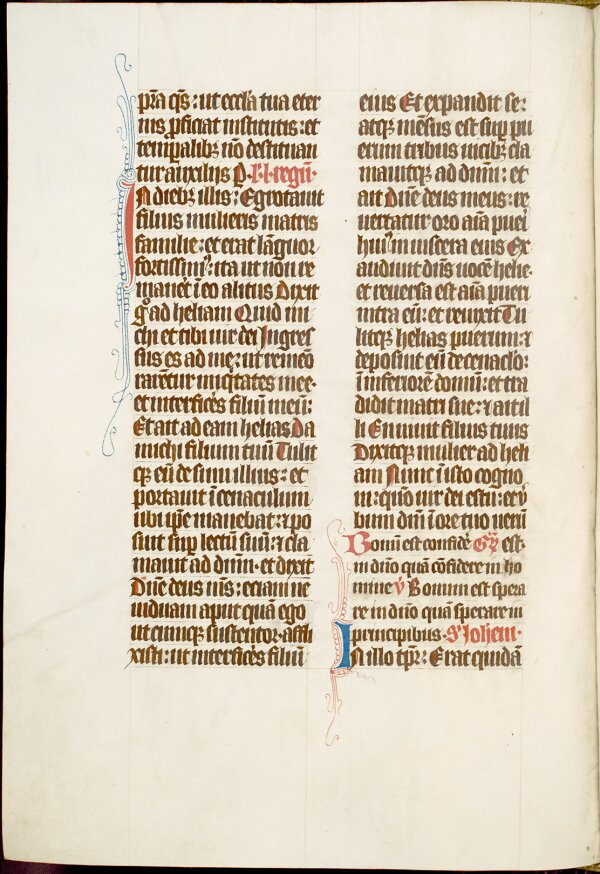 pr̄a qs̄: ut eccl̄a tua eter
nis ꝓficiat institutis: et
temporalibꝫ nō destituan
tur auxiliis ꝑ. l'. l. regū.
In diebꝫ illis: Egrotauit
filius mulieris matris
familie: et erat lāguor
fortissimꝰ: ita ut non re
maneret ī eo alitus Dixit
gͦ ad heliam Quid mi
chi et tibi uir dei Ingres
sus es ad me: ut remeō
rarētur iniq̄tates mee.
et interficēs filiū meū:
Et ait ad eam helias Da
michi filium tuū Tulit
qꝫ eū de sinu illius: et
portauit ī cenaculum
ubi ip̄e manebat: ⁊ po
suit suꝑ lectū suū: ⁊ cla
mauit ad dn̄m. et dixit
Dn̄e deus m̄s: eciam ne
uiduam aput quā ego
ut cumqꝫ sustentor. affli
xisti: ut interficēs filiū
eius Et expandit se:
atqꝫ mēsus est suꝑ pu
erum tribus uicibꝫ cla
mauitqꝫ ad dn̄m: et
ait Dn̄e deus meus: re
uertatur oro aīa pueri
huiꝰ in uiscera eius Ex
audiuit dn̄s uocē helie.
et reuersa est aīa pueri
intra eū: et reuixit Tu
litqꝫ helias puerum: ⁊
deposuit eū de cenaclo:
ī inferiorē domū: et tra
didit matri sue: ⁊ ait il
li En uiuit filius tuus
Dixitqꝫ mulier ad heli
am Nunc ī isto cogno
ui: quō uir dei es tu: et ū
bum dn̄i ī ore tuo uerū
Bonū est confidē Gr̄ est.
in dn̄o quā cōfidere in ho
mine v̄ Bonum est spera
re in dn̄o quā sperare in
principibus. S. Johem.
In illo tp̄r: Erat quidā